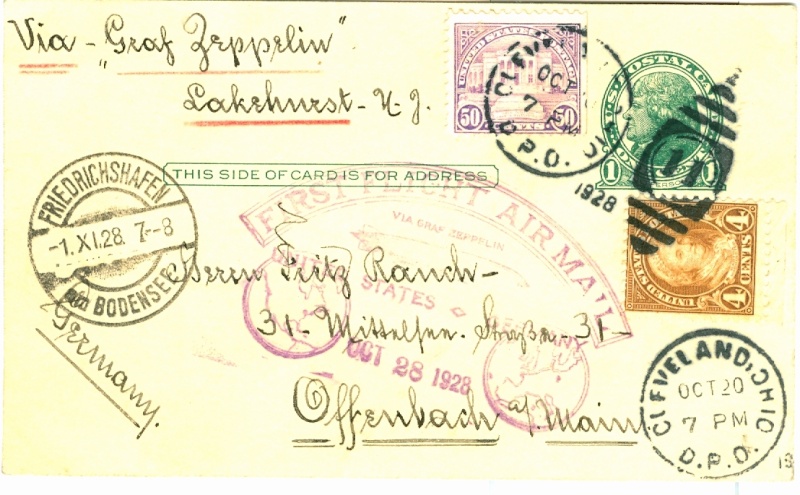 Via - "Graf Zeppelin"
Lakehurst - N. J.
UNITED STATES POSTAGE
50 CENTS 50
CLEVELAND
OCT
7 PM
D.P.O.
1928
U.S. POSTAL CARD
1 1
THIS SIDE OF CARD IS FOR ADDRESS
FRIEDRICHSHAFEN
-1.XI.28. 7-8
BODENSEE
FIRST FLIGHT AIR MAIL
VIA GRAF ZEPPELIN
UNITED STATES GERMANY
OCT 28 1928
4 4
Herrn Fritz Rauch-
31- Straße-31-
Offenbach a/Main
Germany.
CLEVELAND, OHIO
OCT 20
7 PM
D.P.O.